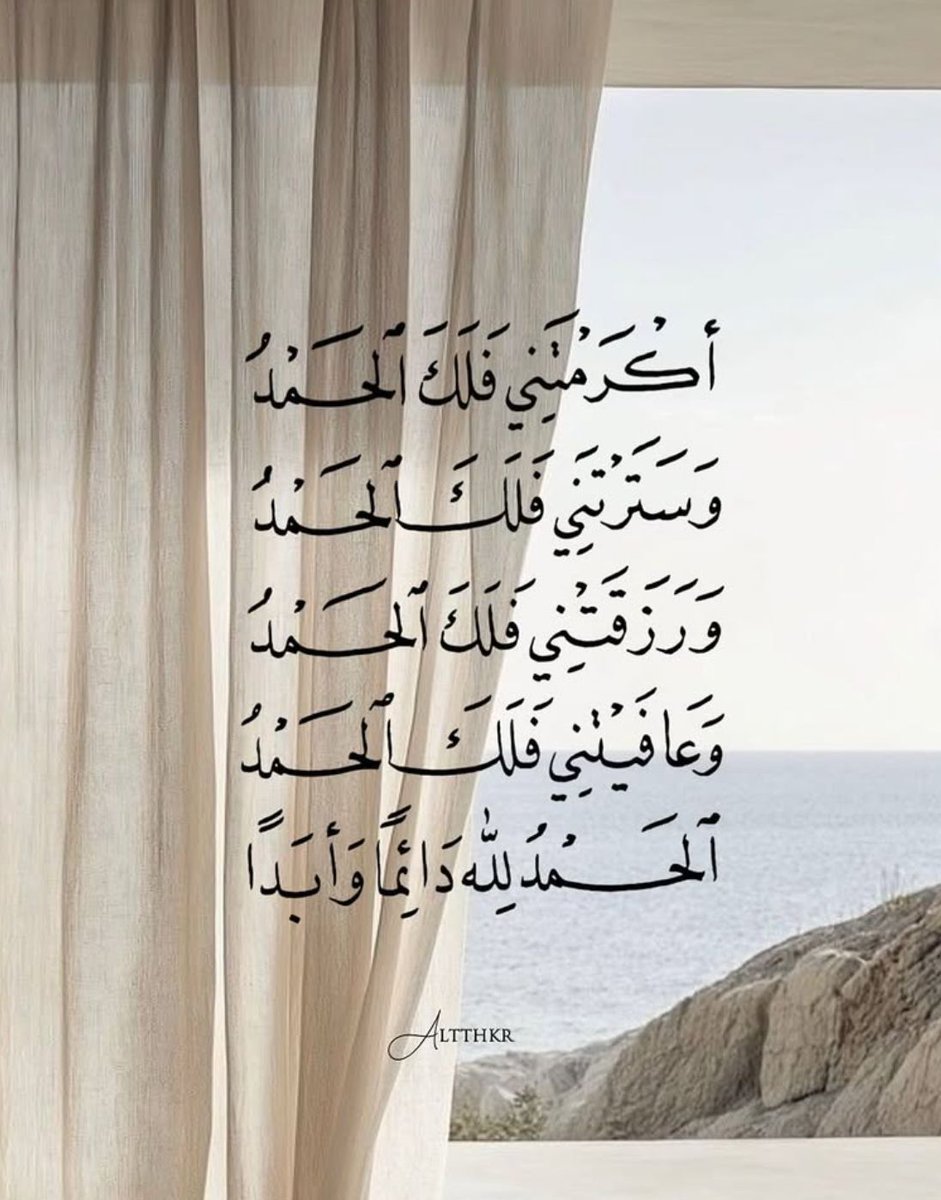 أَكْرَمْتَنِي فَلَكَ ٱلْحَمْدُ
وَسَتَرْتَنِي فَلَكَ ٱلْحَمْدُ
وَرَزَقَتْنِي فَلَكَ ٱلْحَمْدُ
وَعَافَيْتَنِي فَلَكَ ٱلْحَمْدُ
ٱلْحَمْدُ لِلّٰه دَائِمًا وَأَبَدًا
ALTTHKR